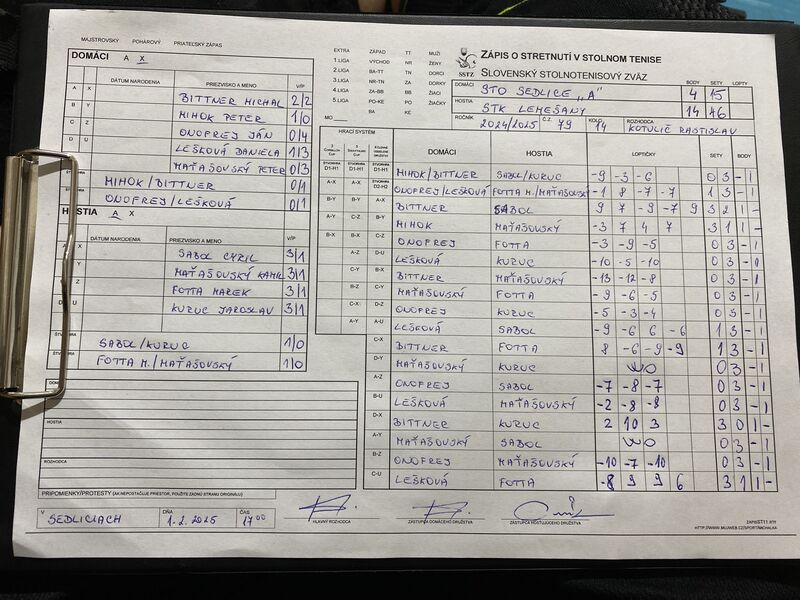 MAJSTROVSKÝ POHÁROVÝ PRIATEĽSKÝ ZÁPAS
DOMÁCI A X
DÁTUM NARODENIA PRIEZVISKO A MENO V/P
A X BITTNER MICHAL 2/2
B Y MIHOK PETER 1/0
C Z ONOFREJ JÁN 0/4
D U LEŠKOVÁ DANIELA 1/3
MAŤAŠOVSKÝ PETER 0/3
MIHOK/BITTNER 0/1
ONOFREJ/LEŠKOVÁ 0/1
HOSTIA A X
DÁTUM NARODENIA PRIEZVISKO A MENO V/P
SABOL CYRIL 3/1
MAŤAŠOVSKÝ KAMIL 3/1
FOTTA MAREK 3/1
KURUC JAROSLAV 3/1
SABOL/KURUC 1/0
FOTTA M./MAŤAŠOVSKÝ 1/0
HOSTIA
ROZHODCA
PRIPOMIENKY/PROTESTY (AK NEPOSTAČUJE PRIESTOR, POUŽITE ZADNÚ STRANU ORIGINÁLU)
V SEDLICIACH DŇA 1.2.2025 ČAS 17 00
HLAVNÝ ROZHODCA
ZÁSTUPCA DOMÁCEHO DRUŽSTVA
ZÁSTUPCA HOSŤUJÚCEHO DRUŽSTVA
EXTRA ZÁPAD TT MUŽI
1.LIGA VÝCHOD NR ŽENY
2.LIGA BA-TT TN DORCI
3.LIGA TN-NR ZA DORKY
4.LIGA ZA-BB BB ŽIACI
5.LIGA PO-KE PO ŽIAČKY
MO BA KE
SSTZ
ZÁPIS O STRETNUTÍ V STOLNOM TENISE
SLOVENSKÝ STOLNOTENISOVÝ ZVÄZ
BODY SETY LOPTY
DOMÁCI STO SEDLICE "A" 4 15
HOSTIA STK LEMEŠANY 14 46
ROČNÍK 2024/2025 CZ 79 KOLO 14 ROZHODCA KOTULIČ RASTISLAV
HRACÍ SYSTÉM DOMÁCI HOSTIA LOPTIČKY SETY BODY
MIHOK/BITTNER SABOL/KURUC -9 -3 -6 0 3 - 1
ONOFREJ/LEŠKOVÁ FOTTA M./MAŤAŠOVSKÝ -1 8 -7 -7 1 3 - 1
BITTNER SABOL 9 7 -9 -7 9 3 2 1 -
MIHOK MAŤAŠOVSKÝ -3 7 4 7 3 1 1 -
ONOFREJ FOTTA -3 -9 -5 0 3 - 1
LEŠKOVÁ KURUC -10 -5 -10 0 3 - 1
BITTNER MAŤAŠOVSKÝ -13 -12 -8 0 3 - 1
MAŤAŠOVSKÝ FOTTA -9 -6 -5 0 3 - 1
ONOFREJ KURUC -5 -3 -4 0 3 - 1
LEŠKOVÁ SABOL -9 -6 6 -6 1 3 - 1
C-X BITTNER FOTTA 8 -6 -9 -9 1 3 - 1
D-Y MAŤAŠOVSKÝ KURUC WO 0 3 - 1
A-Z ONOFREJ SABOL -7 -8 -7 0 3 - 1
B-U LEŠKOVÁ MAŤAŠOVSKÝ -2 -8 -8 0 3 - 1
D-X BITTNER KURUC 2 10 3 3 0 1 -
A-Y MAŤAŠOVSKÝ SABOL WO 0 3 - 1
B-Z ONOFREJ MAŤAŠOVSKÝ -10 -7 -10 0 3 - 1
C-U LEŠKOVÁ FOTTA -8 9 9 6 3 1 1 -
ZAPISST11.RTF
HTTP://WWW.MUJWEB.CZ/SPORT/MICHALKA